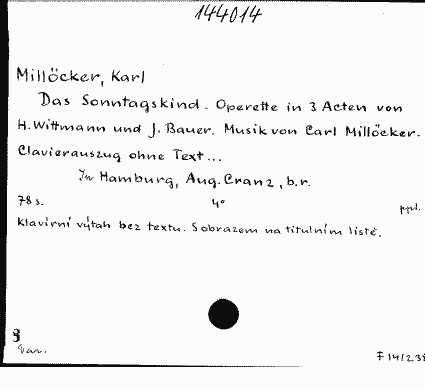 144014
Millöcker, Karl
Das Sonntagskind. Operette in 3 Acten von
H. Wittmann und J. Bauer. Musik von Carl Millöcker.
Clavierauszug ohne Text...
In Hamburg, Aug. Cranz, b.r.
78 s. 4° ppl.
Klavírní výtah bez textu. S obrazem na titulním listě.
Var.
F 141/238